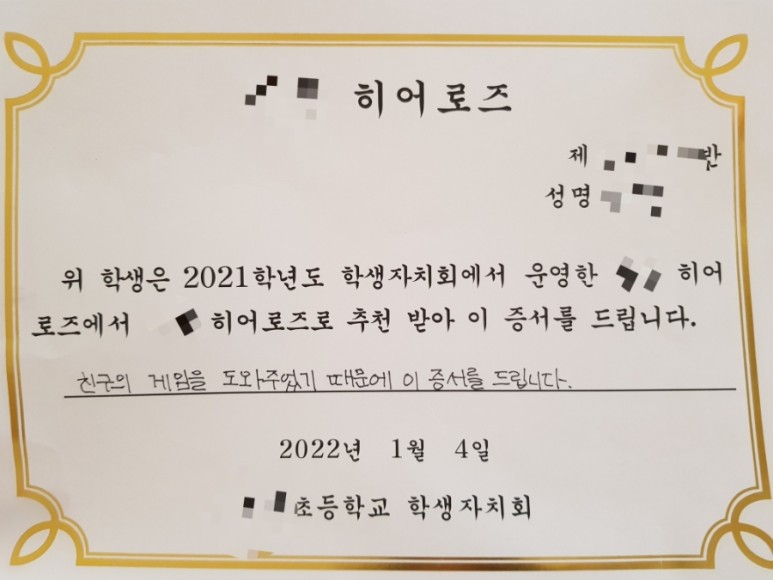 히어로즈
제 반
성명
위 학생은 2021학년도 학생자치회에서 운영한 히어
로즈에서 히어로즈로 추천 받아 이 증서를 드립니다.
친구의 게임을 도와주었기 때문에 이 증서를 드립니다.
2022년 1월 4일
초등학교 학생자치회